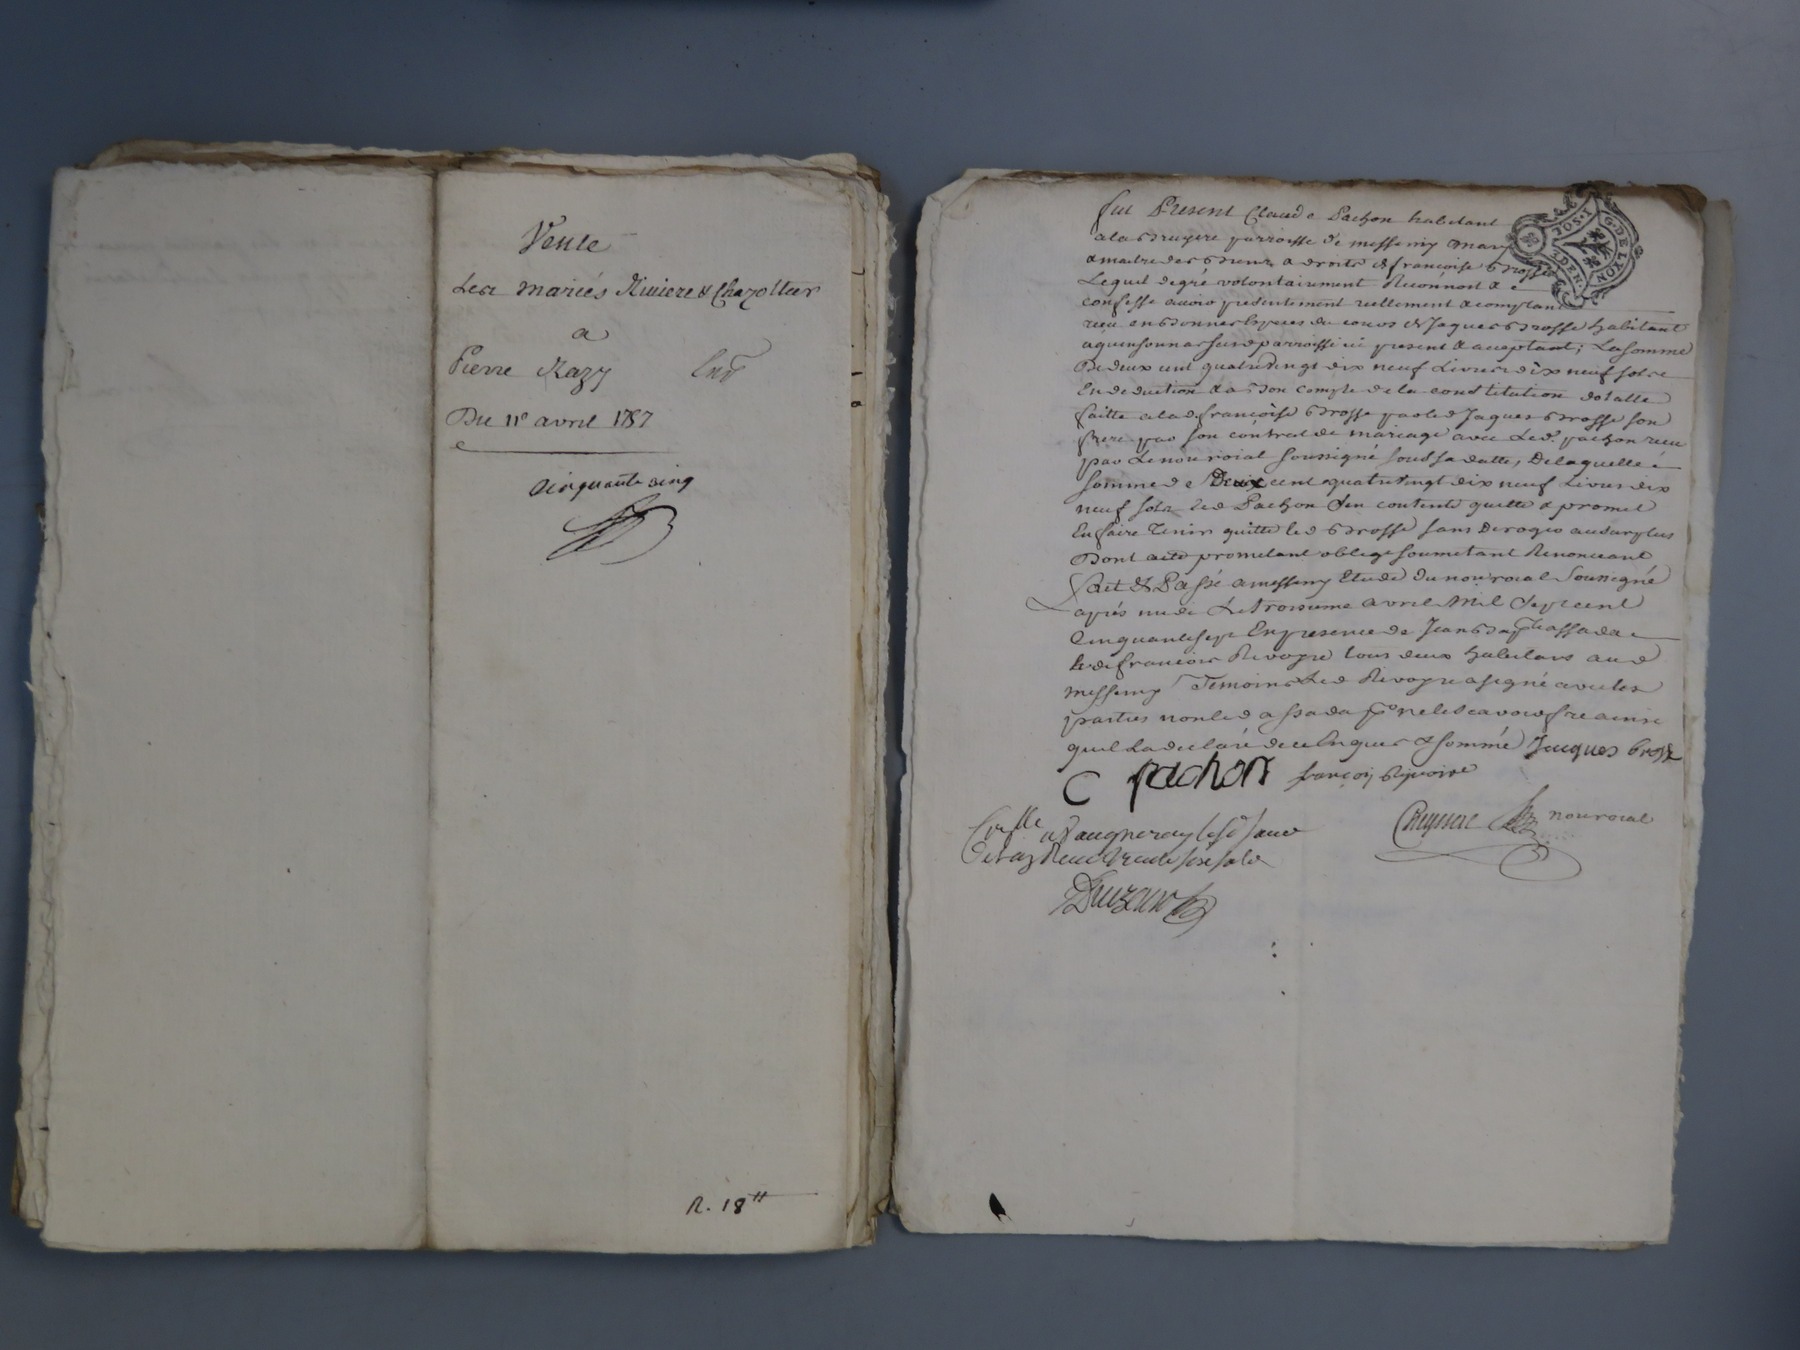 Vente
Les mariés Riviere & Chazottier
a
Pierre Razy
Du 11e avril 1787
cinquante cinq
R. 18"
fut Present Claude Pachon habitant
a la Bruyere parroisse de messimy mary
& maitre des biens & droits de francoise Brosse
Lequel de gré volontairement Reconnoit &
confesse avoir presentement reellement & comptant
receu en bonnes Especes du cours de Jaques Brosse habitant
parroisse ici present & acceptant; La somme
De deux cent quatrevingt dix neuf Livres dix neuf sols
En deduction & a bon compte de la constitution dotalle
faitte a la d francoise Brosse par led Jaques Brosse son
frere par son contrat de mariage avec Led. pachon receu
par Le nou roial soussigné sous sa datte, De laquelle
somme de Deux cent quatrevingt dix neuf Livres dix
neuf sols led Pachon s'en contente quitte & promet
En faire Tenir quitte led Brosse sans Deroger au surplus
Dont acte promettant obligé soumettant Renonceant
fait & Passé a messimy Etude du nou roial soussigné
après midi Le troisieme avril Mil sept cent
Cinquante sept En presence de Jean Bap assada
& de francois Rivoyre tous deux habitans aud
messimy Temoins Led Rivoyre a signé avec les
parties non led assada pr ne le scavoir fre ainsi
quil L'a declaré de ce Enquis & sommé Jacques Brosse
C pachon françois Rivoire
nou roial
G. DE LYON